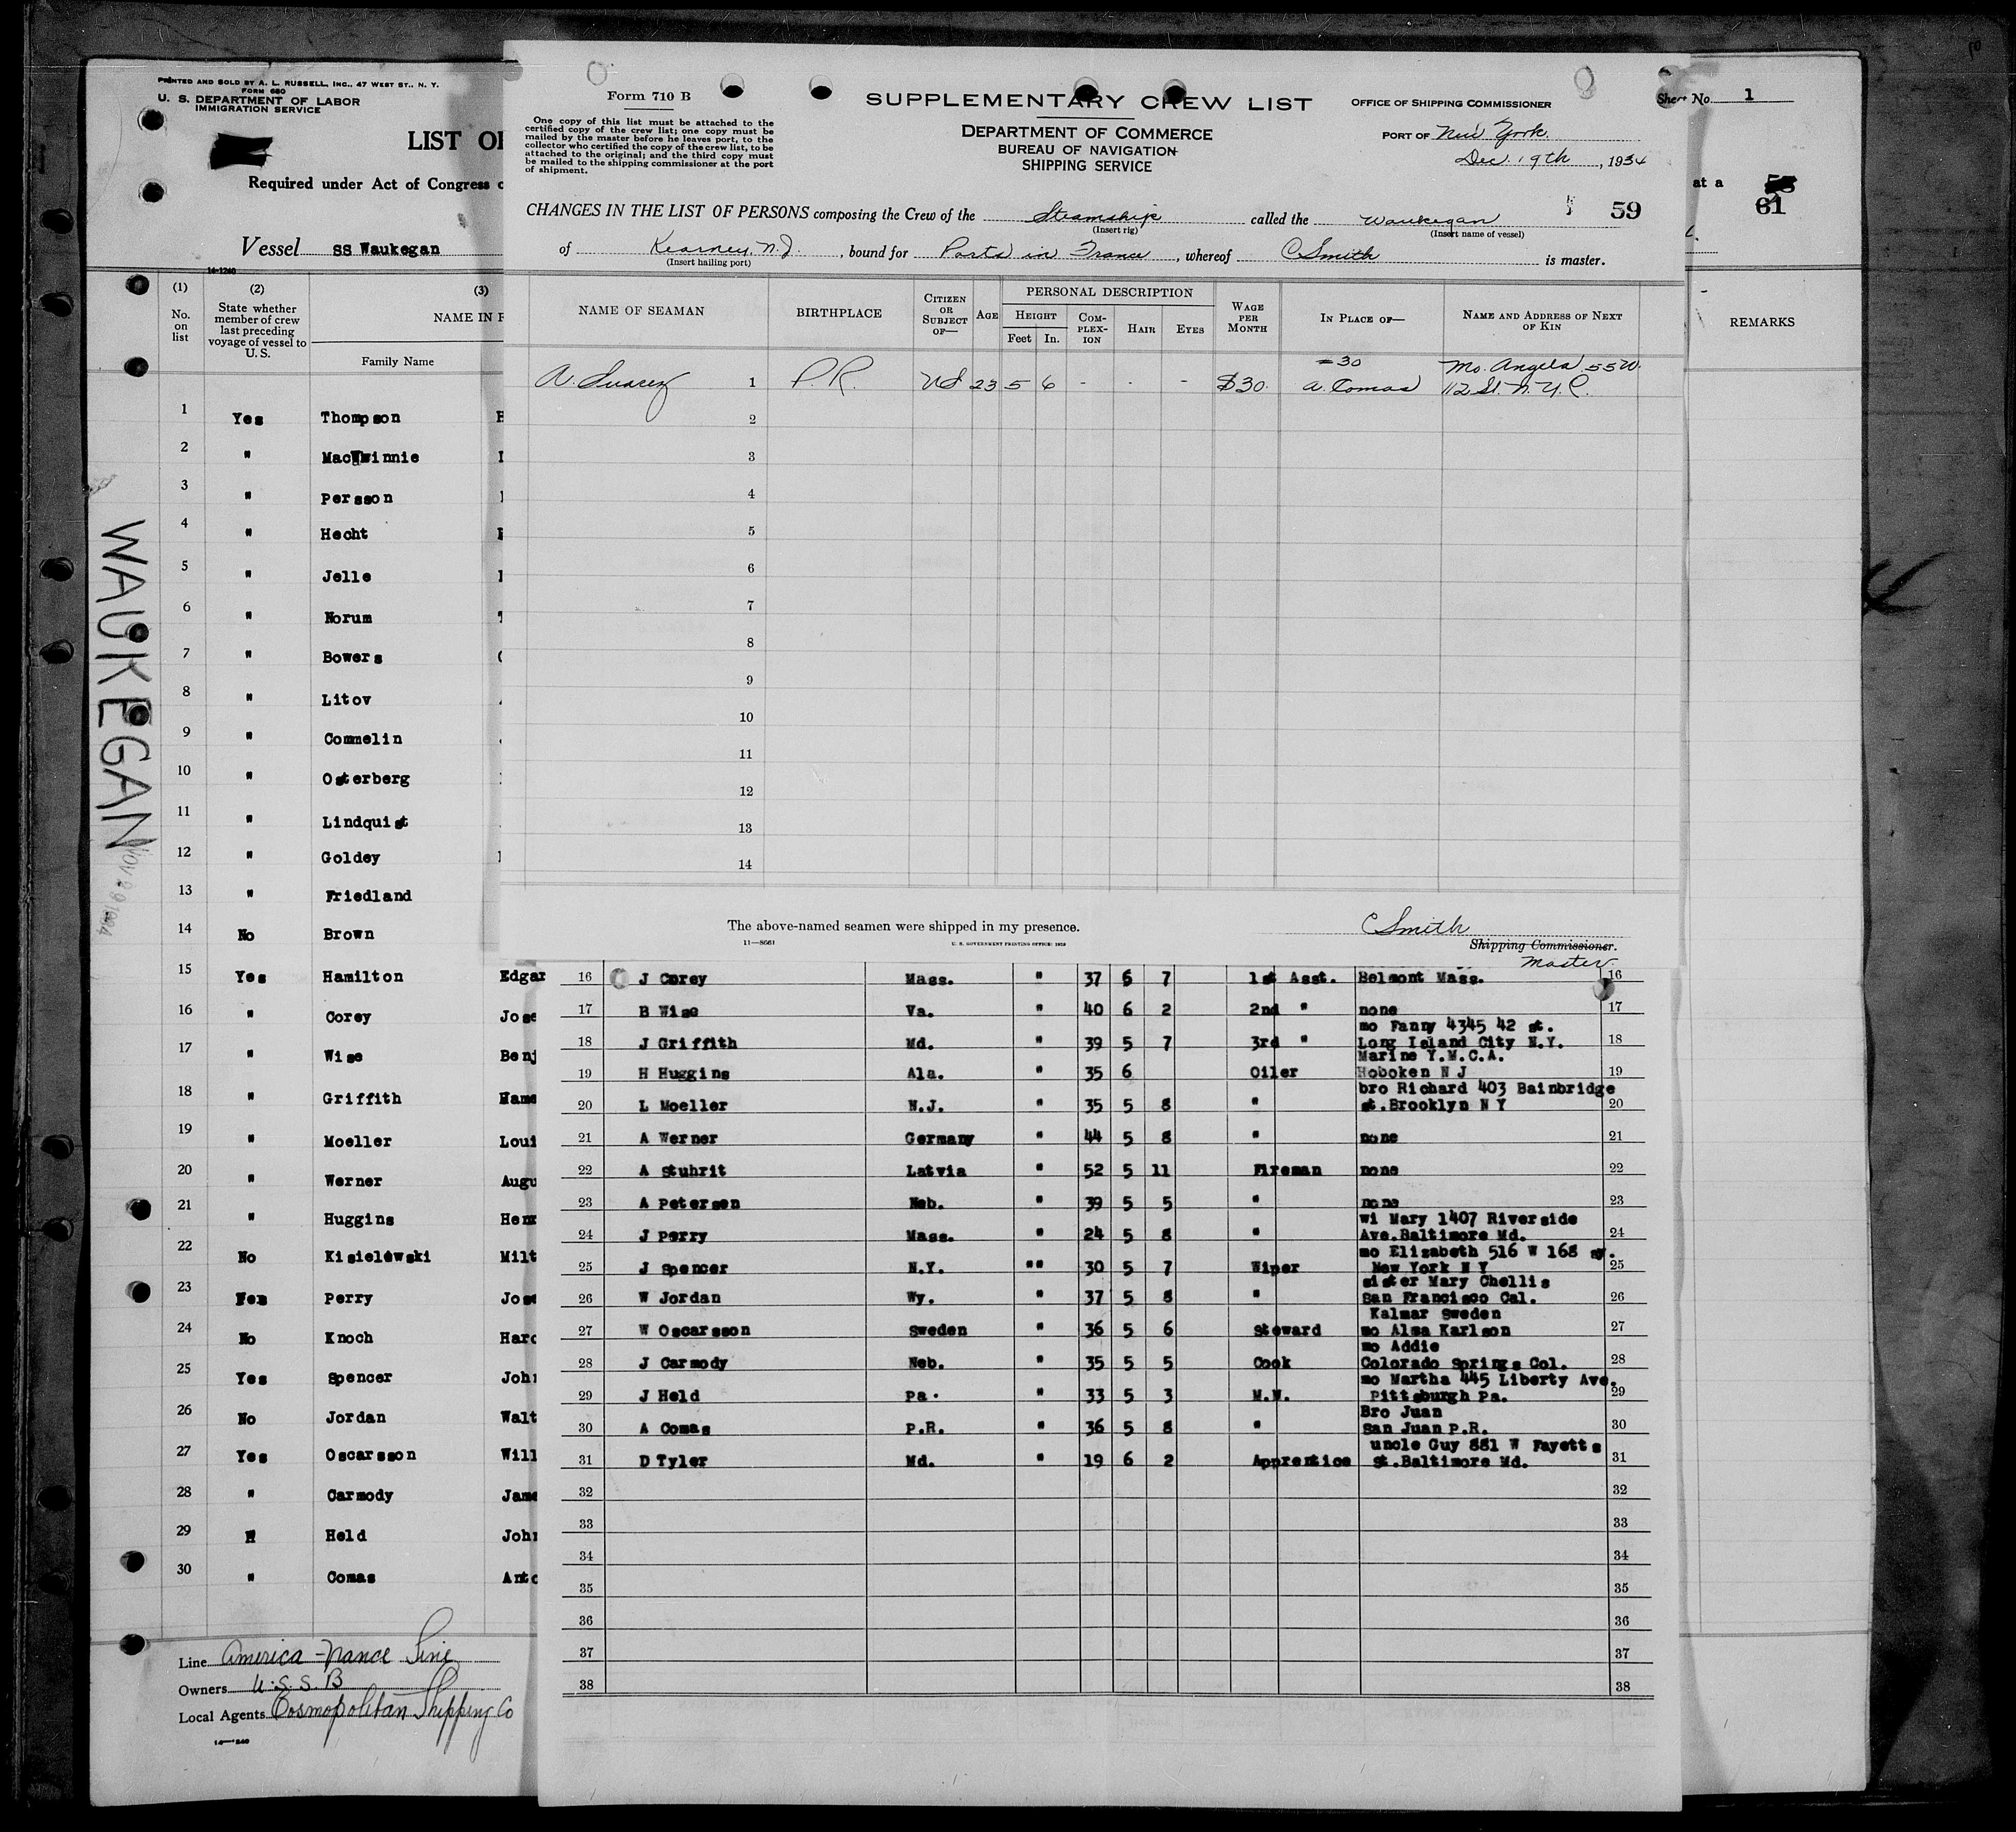 PRINTED AND SOLD BY A. L. RUSSELL, INC., 47 WEST ST., N. Y.
FORM 680
U. S. DEPARTMENT OF LABOR
IMMIGRATION SERVICE
LIST OF
Required under Act of Congress
Vessel SS Waukegan
14-1240
(1) No. on list
(2) State whether member of crew last preceding voyage of vessel to U. S.
(3) NAME IN F
Family Name
1 Yes Thompson
2 " MacWwinnie
3 " Persson
4 " Hecht
5 " Jelle
6 " Norum
7 " Bowers
8 " Litov
9 " Commelin
10 " Osterberg
11 " Lindquist
12 " Goldey
13 " Friedland
14 No Brown
15 Yes Hamilton Edgar
16 " Corey Jose
17 " Wise Benj
18 " Griffith Hame
19 " Moeller Loui
20 " Werner Augu
21 " Huggins Henr
22 No Kisielewski Milt
23 Yes Perry Jose
24 No Knoch Haro
25 Yes Spencer John
26 No Jordan Walt
27 Yes Oscarsson Will
28 " Carmody Jame
29 " Held John
30 " Comas Anto
Line America-France Line
Owners U.S.S.B
Local Agents Cosmopolitan Shipping Co
WAUKEGAN
NOV 29 1934
Form 710 B
One copy of this list must be attached to the
certified copy of the crew list; one copy must be
mailed by the master before he leaves port, to the
collector who certified the copy of the crew list, to be
attached to the original; and the third copy must
be mailed to the shipping commissioner at the port
of shipment.
SUPPLEMENTARY CREW LIST
DEPARTMENT OF COMMERCE
BUREAU OF NAVIGATION
SHIPPING SERVICE
OFFICE OF SHIPPING COMMISSIONER
PORT OF New York
Dec. 19th, 1934
59
CHANGES IN THE LIST OF PERSONS composing the Crew of the Steamship called the Waukegan
(Insert rig) (Insert name of vessel)
of Kearney, N.J., bound for Ports in France, whereof C Smith is master.
(Insert hailing port)
NAME OF SEAMAN
BIRTHPLACE
CITIZEN OR SUBJECT OF—
AGE
PERSONAL DESCRIPTION
HEIGHT Feet In.
COMPLEXION
HAIR
EYES
WAGE PER MONTH
IN PLACE OF—
NAME AND ADDRESS OF NEXT OF KIN
30 Mo. Angela 55 W.
A. Suarez 1 P.R. US 23 5 6 - - - $30. A. Comas 112 St. N.Y.C.
2
3
4
5
6
7
8
9
10
11
12
13
14
The above-named seamen were shipped in my presence.
C Smith
Shipping Commissioner.
Master
11—8661
U. S. GOVERNMENT PRINTING OFFICE: 1929
16 J Corey Mass. " 37 6 7 1st Asst. Belmont Mass. 16
17 B Wise Va. " 40 6 2 2nd " none 17
mo Fanny 4345 42 st.
18 J Griffith Md. " 39 5 7 3rd " Long Island City N.Y. 18
Marine Y.M.C.A.
19 H Huggins Ala. " 35 6 Oiler Hoboken N J 19
bro Richard 403 Bainbridge
20 L Moeller N.J. " 35 5 8 " st.Brooklyn N Y 20
21 A Werner Germany " 44 5 8 " none 21
22 A Stuhrit Latvia " 52 5 11 Fireman none 22
23 A Petersen Neb. " 39 5 5 " none 23
wi Mary 1407 Riverside
24 J Perry Mass. " 24 5 8 " Ave.Baltimore Md. 24
mo Elizabeth 516 W 168 st.
25 J Spencer N.Y. "" 30 5 7 Wiper New York N Y 25
sister Mary Chellis
26 W Jordan Wy. " 37 5 8 " San Francisco Cal. 26
Kalmar Sweden
27 W Oscarsson Sweden " 36 5 6 Steward mo Alma Karlson 27
mo Addie
28 J Carmody Neb. " 35 5 5 Cook Colorado Springs Col. 28
mo Martha 445 Liberty Ave.
29 J Held Pa. " 33 5 3 M.M. Pittsburgh Pa. 29
Bro Juan
30 A Comas P.R. " 36 5 8 " San Juan P.R. 30
uncle Guy 881 W Fayette
31 D Tyler Md. " 19 6 2 Apprentice st.Baltimore Md. 31
32 32
33 33
34 34
35 35
36 36
37 37
38 38
Sheet No. 1
at a
61
REMARKS